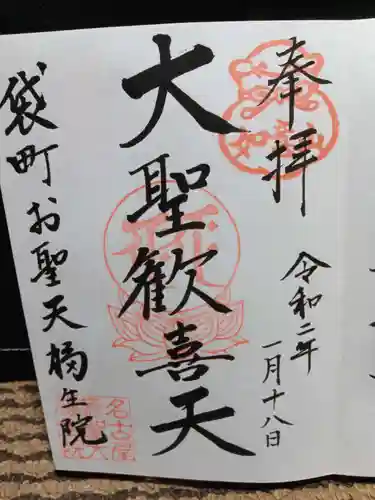 奉拝
令和二年
一月十八日
大聖歓喜天
袋町お聖天
橘生院
名古屋